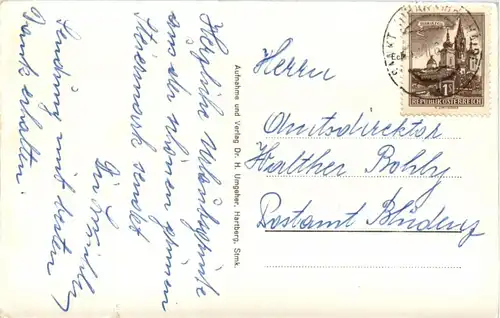 Herzliche Urlaubsgrüße
aus der schönen grünen
Steiermark sendet
Sendung mit bestem
Dank erhalten.
Aufnahme und Verlag Dr. H. Umgeher, Hartberg, Stmk.
SANKT JOHANN
MARIAZELL
1S
REPUBLIK ÖSTERREICH
Herrn
Amtsdirektor
Walther Bohly
Postamt Bludenz